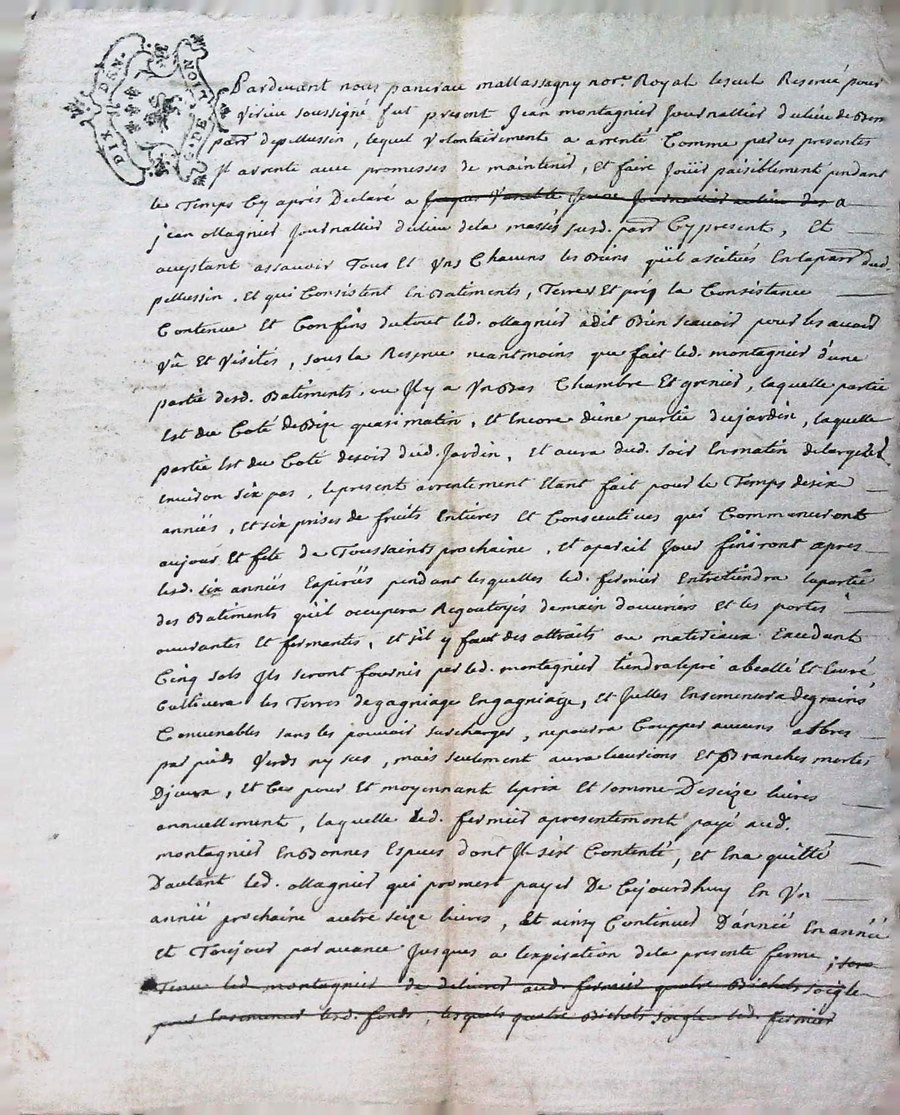 DIX DEN.
G. DE LION
Pardevant nous panciau mallassagny nore. Royal Reservé pour
Virieu soussigné fut present Jean montagnier Journallier du lieu de
parr. depellussin, lequel volontairement a arrenté Comme par ces presentes
Jl arrente avec promesses de maintenir, et faire Joüir paisiblement pendant
le Temps Cy aprés Declaré a Jacques Journallier au lieu des a
jean ollagnier Journallier du lieu dela susd. parr. Cy present, Et
acceptant assavoir Tous Et Uns Chacuns les Biens qu'il a scitués En la parr. dud.
pellussin, et qui Consistent En Batiments, Terres Et prés la Consistance
Contenue Et Confins du tout led. ollagnier a dit Bien scavoir pour les avoir
Vû Et Visités, sous la Reserve neantmoins que fait led. montagnier d'une
partie desd. Batiments, ou Jl y a Un Bas Chambre Et grenier, laquelle partie
Est du Coté de Bize quasi matin, et Encore d'une partie du jardin, laquelle
partie Est du Coté de soir dud. Jardin, et aura dud. soir En matin de large
environ six pas, le present arrentement Etant fait pour le Temps de six
années, et six prises de fruits Entieres et Consecutives qui Commenceront
aujour et fete de Toussaints prochaine, et a pareil Jour finiront apres
lesd. six années Expirées pendant lesquelles led. fermier Entretiendra la partie
des Batiments qu'il occupera Regoutoyés de main d'ouvriers et les portes
ouvrantes et fermantes, et s'il y faut des attraits ou materiaux Excedant
Cinq sols Jls seront fournis par led. montagnier tiendra le pré a Et Curé
Cultivera les Terres de gagniage En gagniage, et Jcelles Ensemencera de grains
Convenables sans les pouvoir surcharger, ne pourra Coupper aucuns arbres
par pieds Verds ny secs, mais seulement aura les Et Branches mortes
D'jceux, et Ces pour Et moyennant le prix et somme De seize livres
annuellement, laquelle led. fermier a presentement payé aud.
montagnier En Bonnes Especes dont Jl s'est Contenté, et En a quitté
D'autant led. ollagnier qui promest payer De Cejourdhuy En Un
année prochaine autre seize livres, Et ainsy Continuer D'année En année
et Toujour par avance Jusques a l'expiration de la presente ferme, sera
Tenu led. montagnier de delivrer aud. fermier quatre Bichets soigle
pour Ensemencer lesd. fonds, lesquels quatre Bichets soigle led. fermier